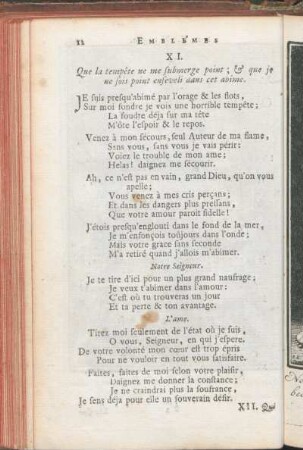 12 EMBLÊMES
XI.
Que la tempête ne me submerge point ; & que je
ne sois point enseveli dans cet abime.
JE suis presqu'abimé par l'orage & les flots,
Sur moi fondre je vois une horrible tempête;
La foudre déja sur ma tête
M'ôte l'espoir & le repos.
Venez à mon secours, seul Auteur de ma flame,
Sans vous, sans vous je vais périr:
Voiez le trouble de mon ame;
Helas! daignez me secourir.
Ah, ce n'est pas en vain, grand Dieu, qu'on vous
apelle;
Vous venez à mes cris perçans;
Et dans les dangers plus pressans,
Que votre amour paroit fidelle!
J'étois presqu'englouti dans le fond de la mer,
Je m'enfonçois toûjours dans l'onde;
Mais votre grace sans seconde
M'a retiré quand j'allois m'abimer.
Notre Seigneur.
Je te tire d'ici pour un plus grand naufrage;
Je veux t'abimer dans l'amour:
C'est où tu trouveras un jour
Et ta perte & ton avantage.
L'ame.
Tirez moi seulement de l'état où je suis,
O vous, Seigneur, en qui j'espere.
De votre volonté mon cœur est trop épris
Pour ne vouloir en tout vous satisfaire.
Faites, faites de moi selon votre plaisir,
Daignez me donner la constance;
Je ne craindrai plus la soufrance,
Je sens déja pour elle un souverain désir.
XII. Que